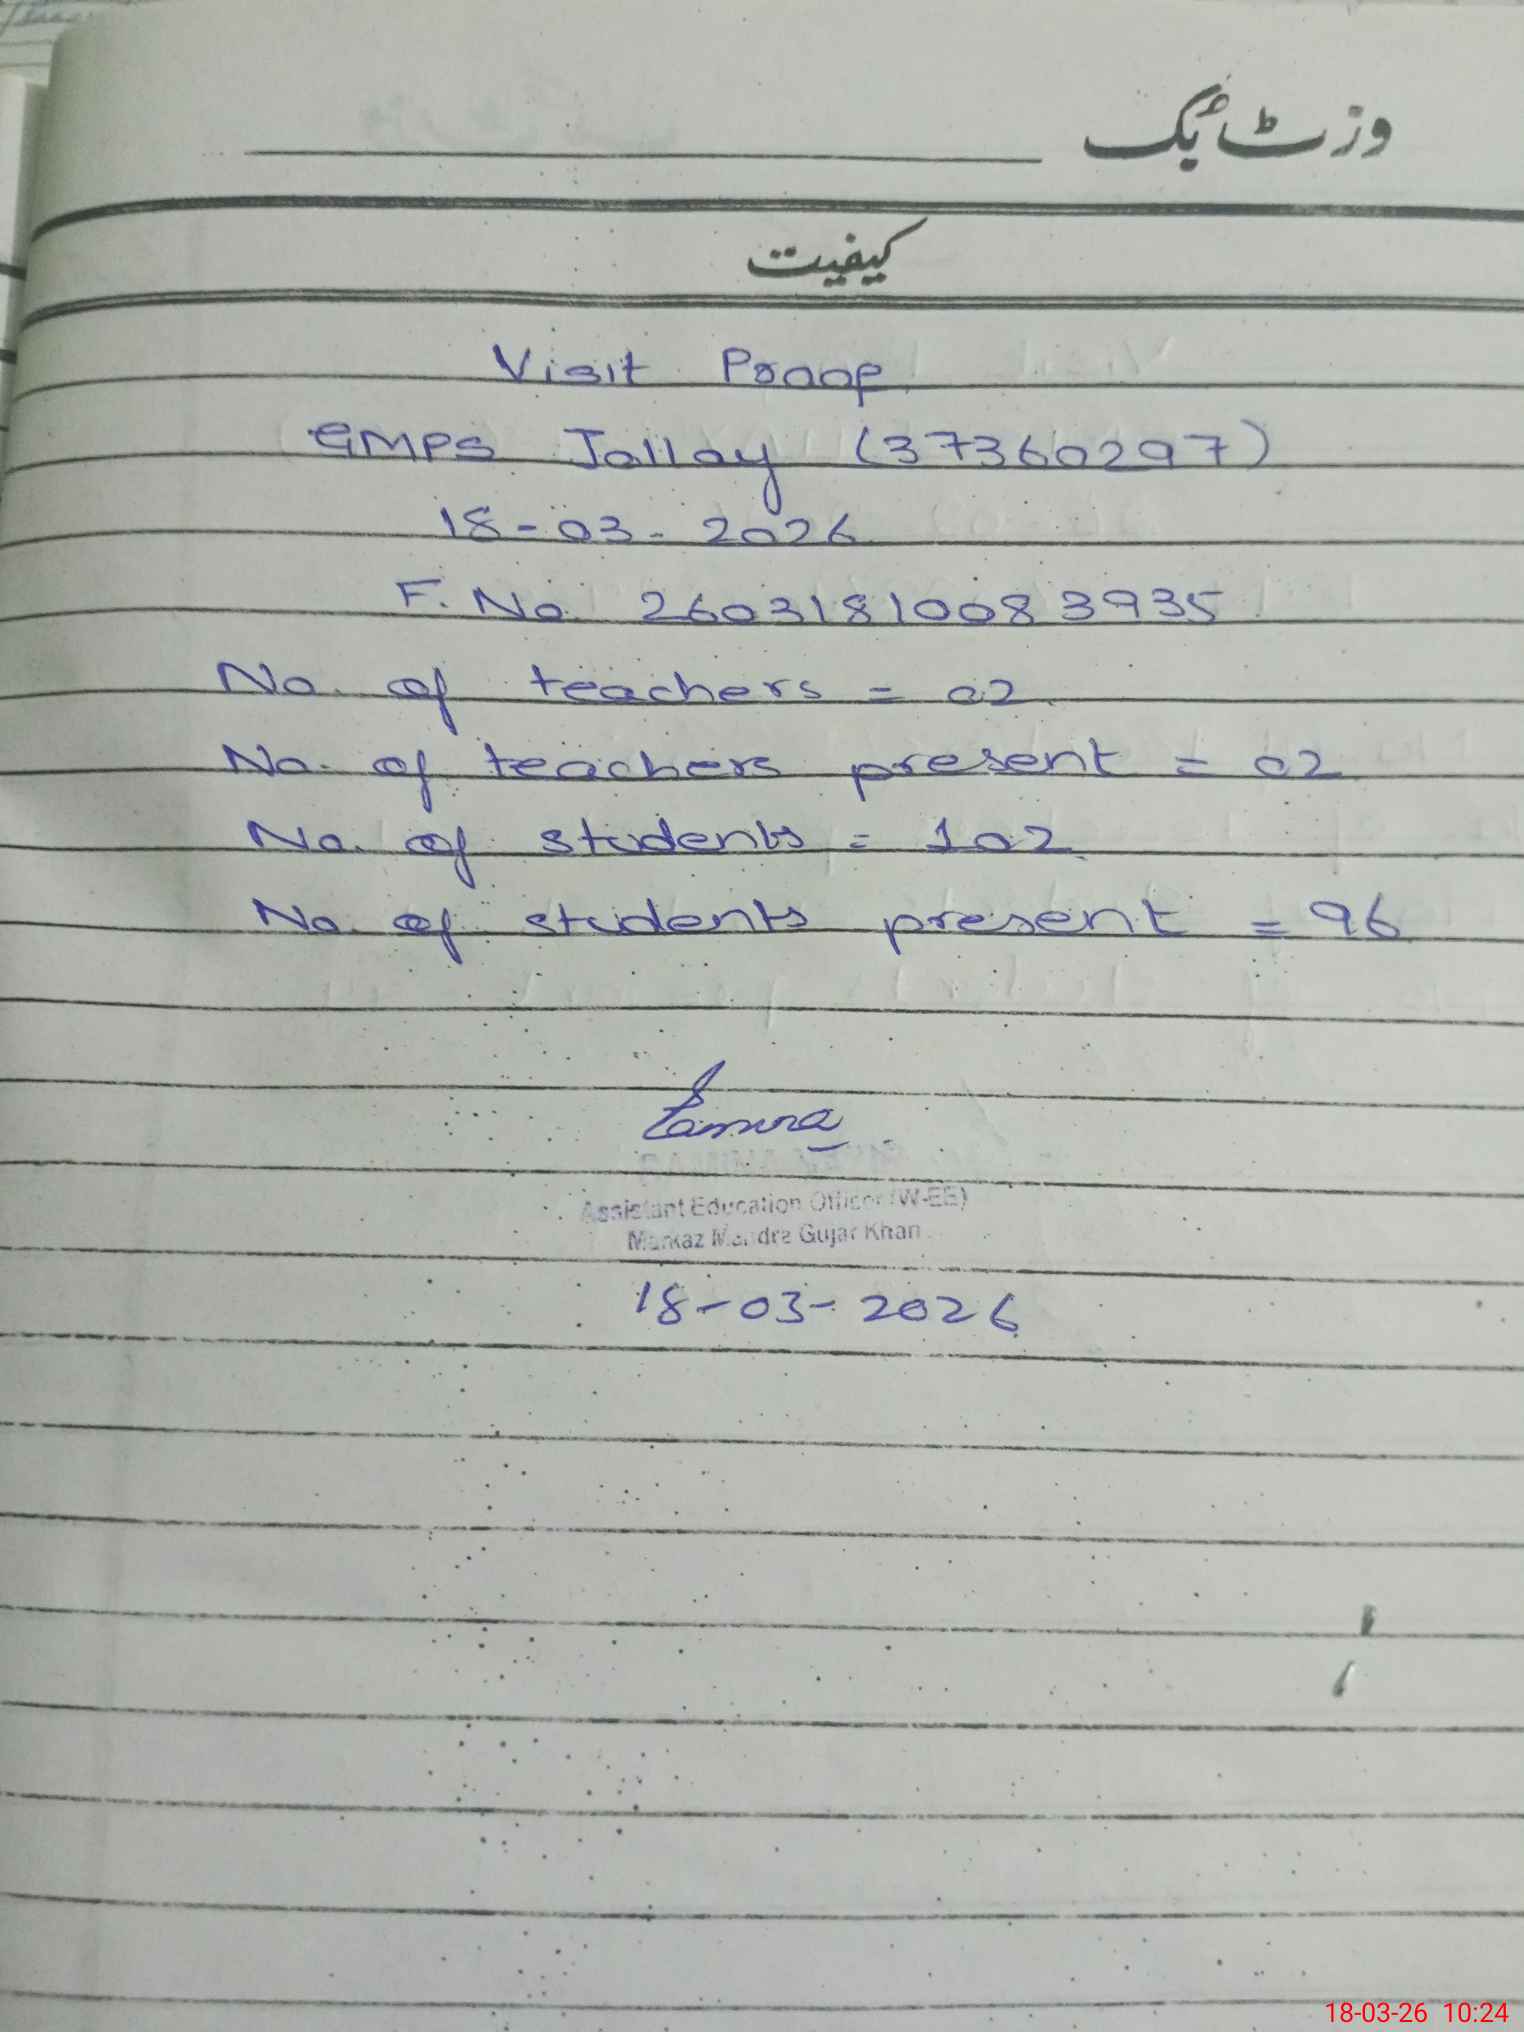 وزٹ بُک
کیفیت
Visit Proof
GMPS Jallay (37360297)
18-03-2026
F. No. 26031810083935
No. of teachers = 02
No. of teachers present = 02
No. of students = 102
No. of students present = 96
Assistant Education Officer (W-EE)
Markaz Mandra Gujar Khan
18-03-2026
18-03-26 10:24